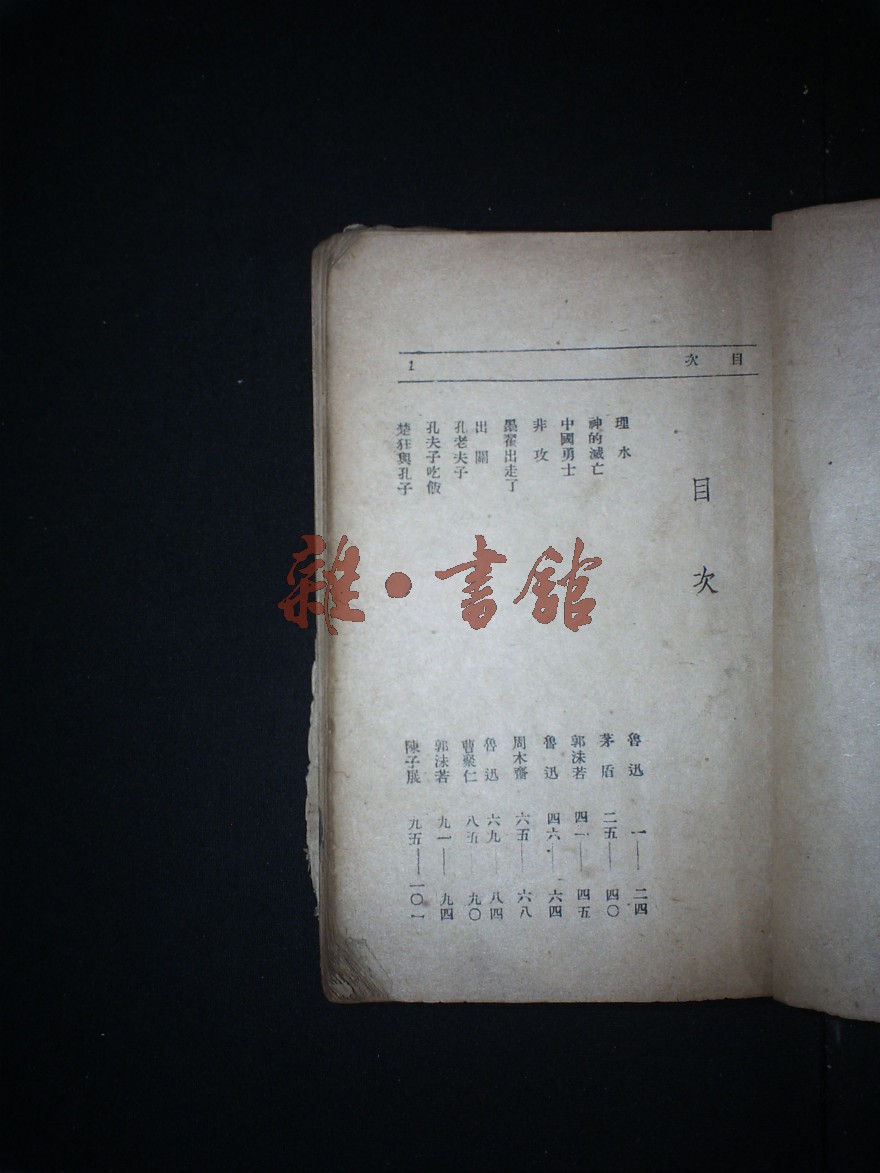 目次
1
目次
理水　魯迅　一——二四
神的滅亡　茅盾　二五——四〇
中國勇士　郭沫若　四一——四五
非攻　魯迅　四六——六四
墨翟出走了　周木齋　六五——六八
出關　魯迅　六九——八四
孔老夫子　曹聚仁　八五——九〇
孔夫子吃飯　郭沫若　九一——九四
楚狂與孔子　陳子展　九五——一〇一
雜·書館